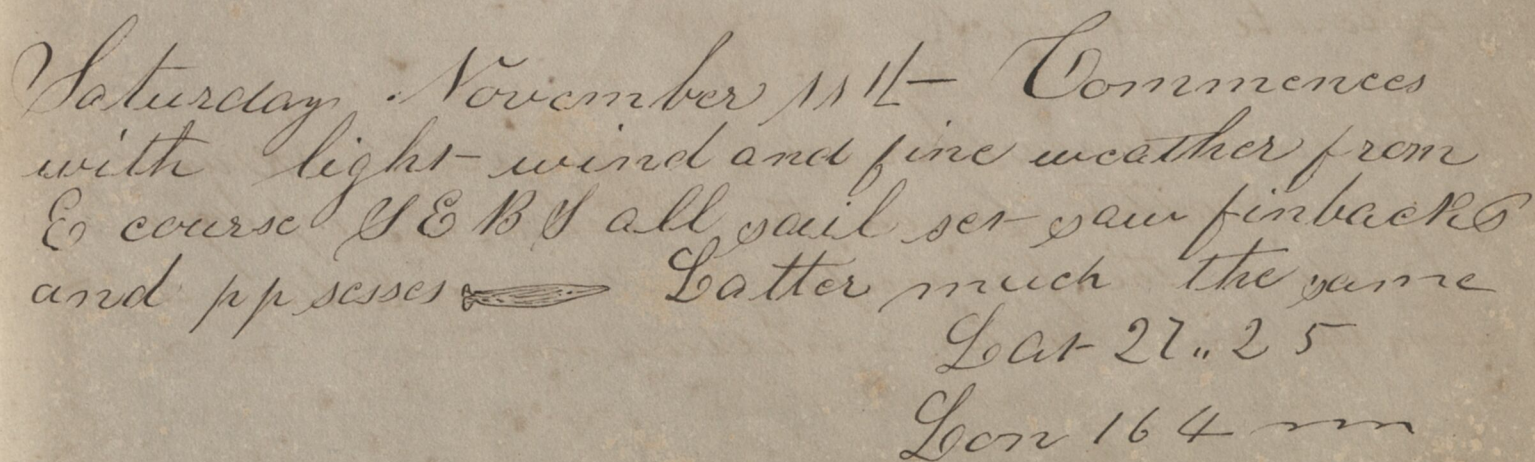 Saturday November 11th Commences
with light wind and fine weather from
E course S E B S all sail set saw finbacks
and pp sesses Latter much the same
Lat 27 .. 25
Lon 164